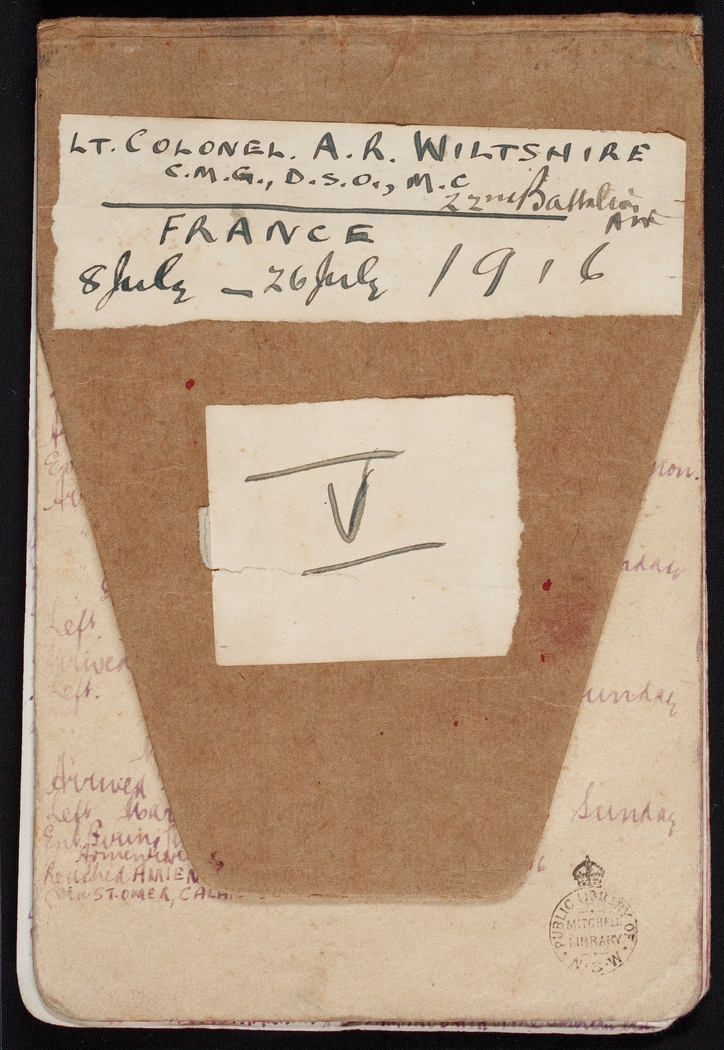 LT. COLONEL. A. R. WILTSHIRE
C.M.G., D.S.O., M.C
22nd Battalion
AIF
FRANCE
8 July _ 26 July 1916
V
Left
Left.
Sunday
Arrived
Left
Sunday
Reached AMIEN
ST. OMER, CALA
PUBLIC LIBRARY OF
MITCHELL
LIBRARY
N.S.W.